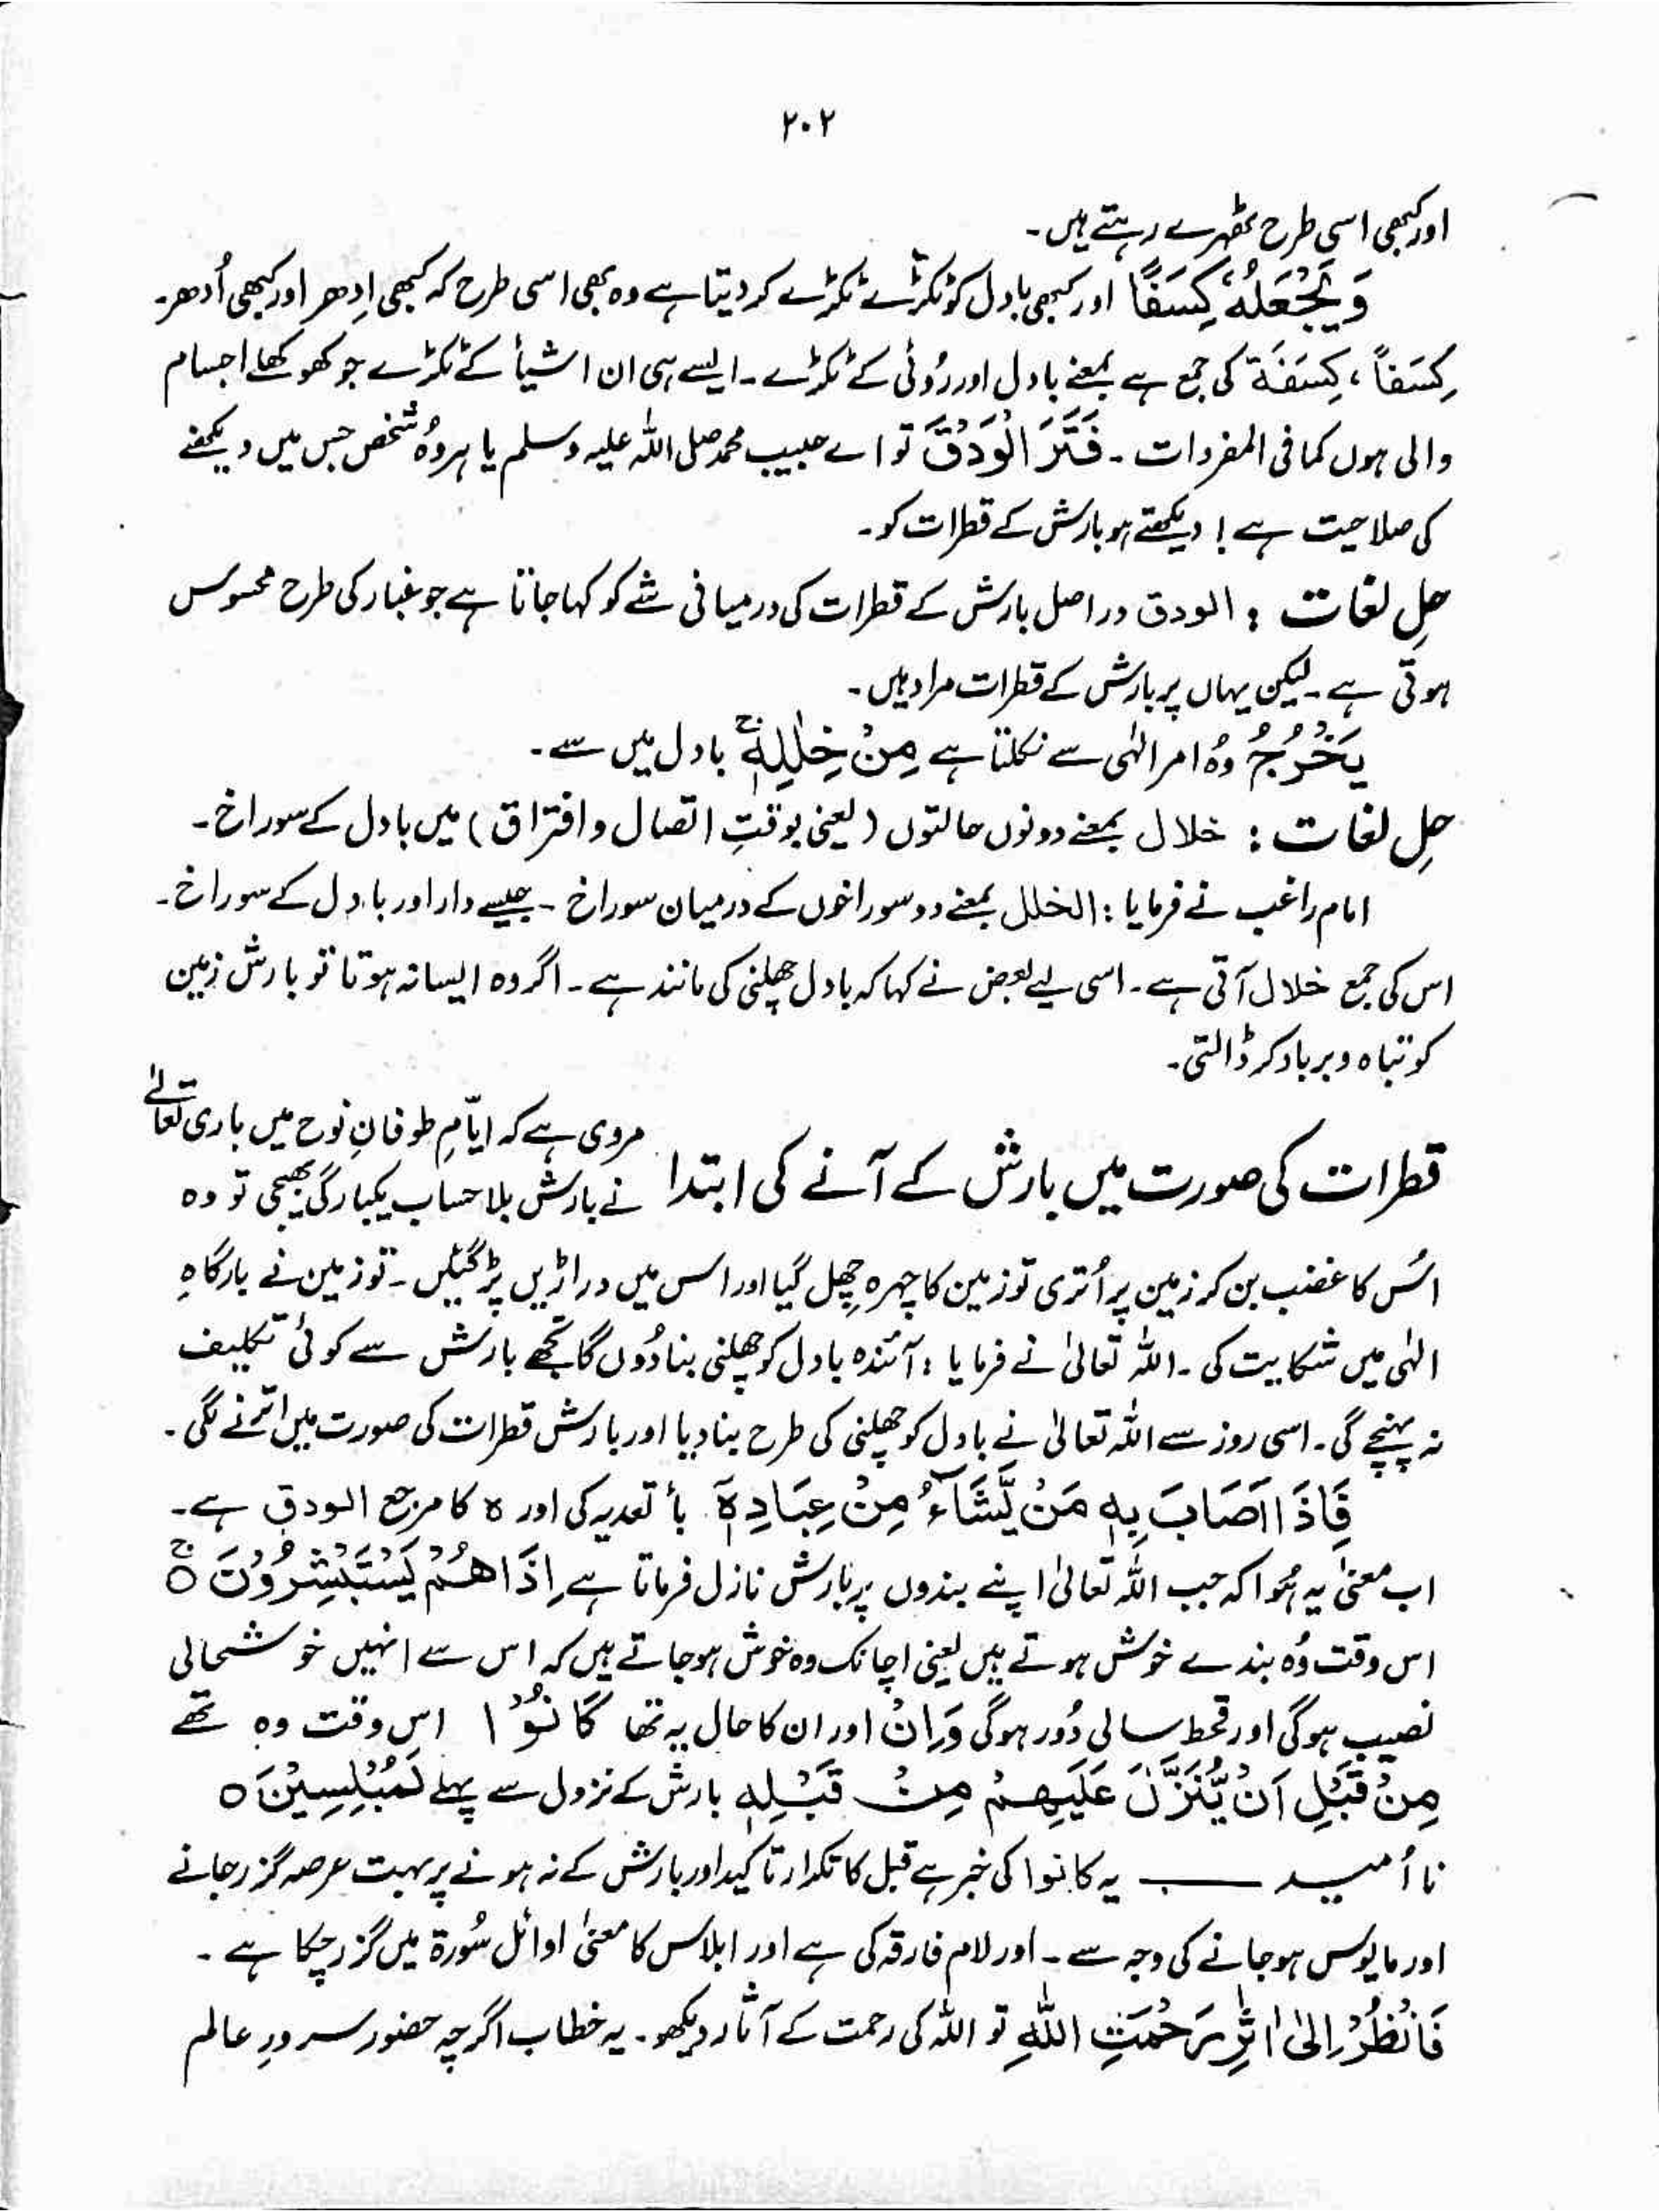 ۲۰۲
اور کبھی اسی طرح ٹھہرے رہتے ہیں۔
وَ یَجْعَلُهٗ کِسَفًا اور کبھی بادل کو ٹکڑے ٹکڑے کر دیتا ہے وہ بھی اسی طرح کہ کبھی اِدھر اور کبھی اُدھر۔
کِسَفاً، کِسَفَة کی جمع ہے بمعنے بادل اور رُوئی کے ٹکڑے۔ ایسے ہی ان اشیأ کے ٹکڑے جو کھوکھلے اجسام
والی ہوں کما فی المفردات۔ فَتَرَ الْوَدْقَ تو اے حبیب محمد صلی اللہ علیہ وسلم یا ہر وُہ شخص جس میں دیکھنے
کی صلاحیت ہے! دیکھتے ہو بارش کے قطرات کو۔
حلِ لغات : الودق دراصل بارش کے قطرات کی درمیانی شے کو کہا جاتا ہے جو غبار کی طرح محسوس
ہوتی ہے۔ لیکن یہاں پر بارش کے قطرات مراد ہیں۔
یَخْرُجُ وُہ امر الٰہی سے نکلتا ہے مِنْ خِلٰلِهٖ ۚ بادل میں سے۔
حلِ لغات : خلال بمعنے دونوں حالتوں (یعنی بوقتِ اتصال و افتراق) میں بادل کے سوراخ۔
امام راغب نے فرمایا : الخلل بمعنے دو سوراخوں کے درمیان سوراخ۔ جیسے دار اور بادل کے سوراخ۔
اس کی جمع خلال آتی ہے۔ اسی لیے بعض نے کہا کہ بادل چھلنی کی مانند ہے۔ اگر وہ ایسا نہ ہوتا تو بارش زمین
کو تباہ و برباد کر ڈالتی۔
قطرات کی صورت میں بارش کے آنے کی ابتدا مروی ہے کہ ایّامِ طوفانِ نوح میں باری تعالےٰ
نے بارش بلا حساب یکبارگی بھیجی تو وہ
اُس کا غضب بن کر زمین پر اُتری تو زمین کا چہرہ چِھل گیا اور اس میں دراڑیں پڑ گئیں۔ تو زمین نے بارگاہِ
الٰہی میں شکایت کی۔ اللہ تعالیٰ نے فرمایا : آئندہ بادل کو چھلنی بنا دُوں گا تجھے بارش سے کوئی تکلیف
نہ پہنچے گی۔ اسی روز سے اللہ تعالیٰ نے بادل کو چھلنی کی طرح بنا دیا اور بارش قطرات کی صورت میں اترنے لگی۔
فَاِذَا اَصَابَ بِهٖ مَنْ یَّشَآءُ مِنْ عِبَادِهٖٓ بأ تعدیہ کی اور ہ کا مرجع الودق ہے۔
اب معنیٰ یہ ہُوا کہ جب اللہ تعالیٰ اپنے بندوں پر بارش نازل فرماتا ہے اِذَا هُمْ یَسْتَبْشِرُوْنَ ۚ۝
اس وقت وُہ بندے خوش ہوتے ہیں یعنی اچانک وہ خوش ہو جاتے ہیں کہ اس سے انہیں خوشحالی
نصیب ہوگی اور قحط سالی دُور ہوگی وَاِنْ اور ان کا حال یہ تھا کَانُوْا اس وقت وہ تھے
مِنْ قَبْلِ اَنْ یُّنَزَّلَ عَلَیْهِمْ مِنْ قَبْلِهٖ بارش کے نزول سے پہلے لَمُبْلِسِیْنَ ۝
نا اُمید ــــ یہ کانوا کی خبر ہے قبل کا تکرار تاکید اور بارش کے نہ ہونے پر بہت عرصہ گزر جانے
اور مایوس ہو جانے کی وجہ سے۔ اور لام فارقہ کی ہے اور ابلاس کا معنیٰ اوائل سُورۃ میں گزر چکا ہے۔
فَانْظُرْ اِلٰۤی اٰثٰرِ رَحْمَتِ اللّٰهِ تو اللہ کی رحمت کے آثار دیکھو۔ یہ خطاب اگرچہ حضور سرورِ عالم